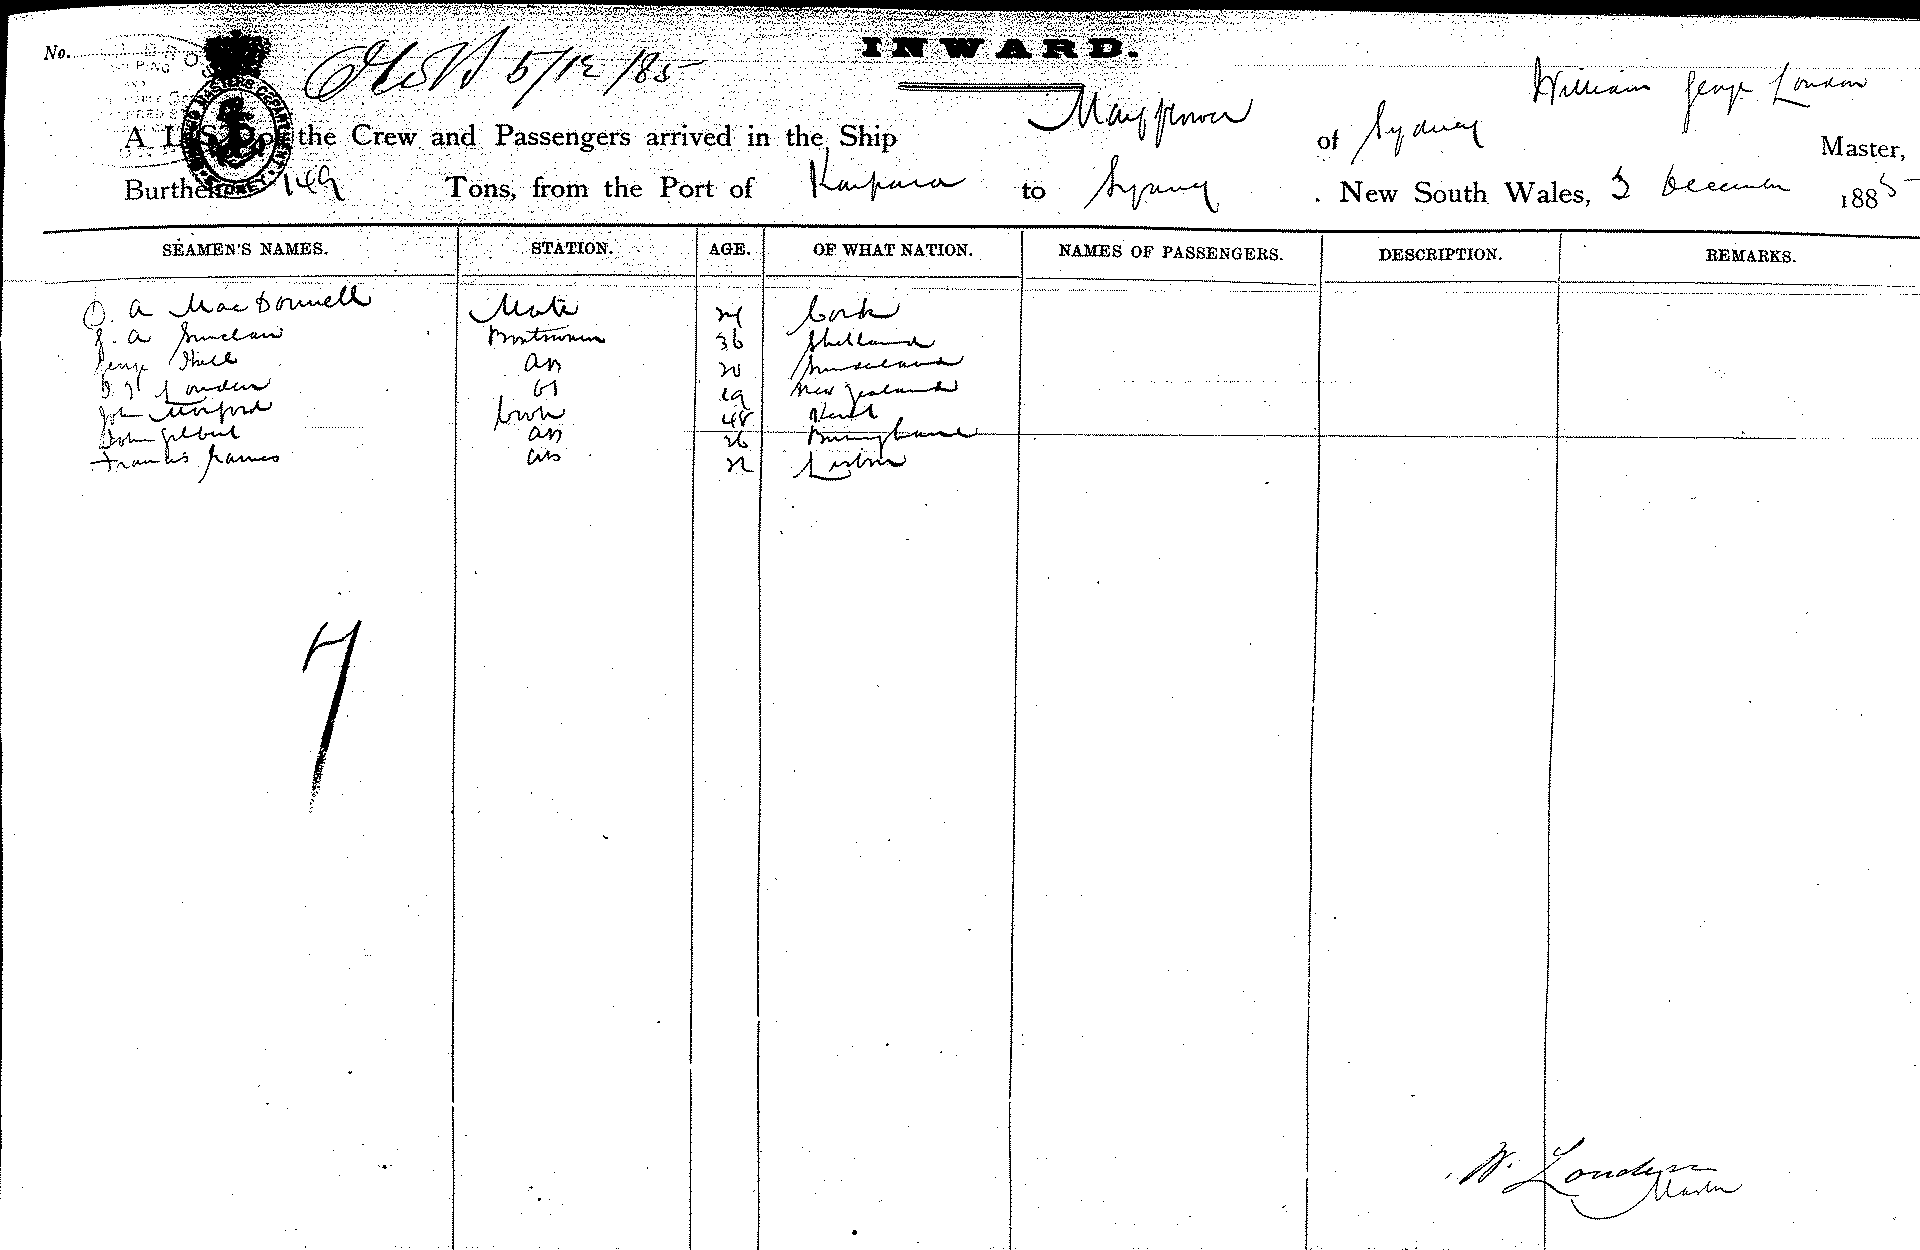 No.
5/12/85
INWARD.
William George London
A LIST of the Crew and Passengers arrived in the Ship Mayflower of Sydney Master,
Burthen 149 Tons, from the Port of Kaipara to Sydney . New South Wales, 3 December 1885
SEAMEN'S NAMES. STATION. AGE. OF WHAT NATION. NAMES OF PASSENGERS. DESCRIPTION. REMARKS.
A MacDonnell Mate Cork
A Sinclair Boatswain 36 Shetland
George Hill AB 20 Sunderland
London OS 19 New Zealand
John Cook 48 Kent
John Gilbert AB 26 Birmingham
Francis James AB 22 Lisbon
7
W. London
Master